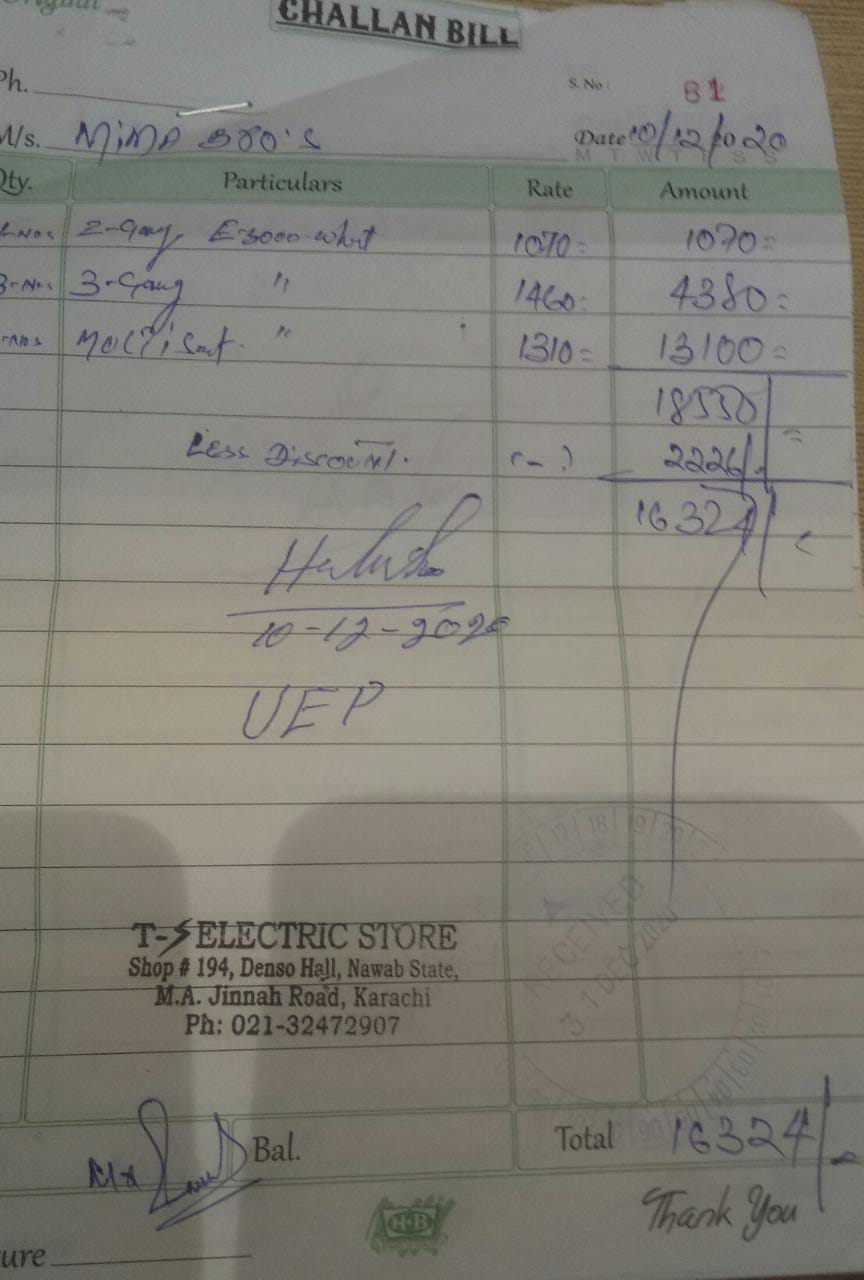 Original
CHALLAN BILL
Ph.
S. No: 81
M/s. MiMA BRO'S
Date 10/12/2020
M T W T F S S
Qty. Particulars Rate Amount
1-Nos 2-Gang E-3000-whit 1070= 1070=
3-Nos 3-Gang " 1460= 4380=
-Nos " 1310= 13100=
18550
Less Discount. (-) 2226/-
16324/
10-12-2020
UEP
17 18 19 20
RECEIVED
31 DEC 2020
T-S ELECTRIC STORE
Shop # 194, Denso Hall, Nawab State,
M.A. Jinnah Road, Karachi
Ph: 021-32472907
Bal. Total 16324/-
H-B
Thank You
ture